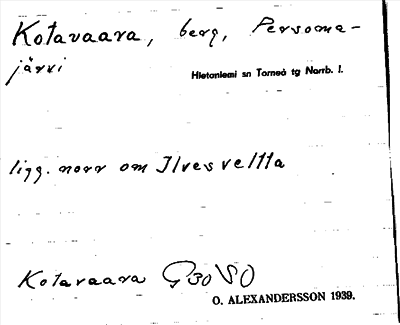 Kotavaara, berg, Persoma-
järvi
Hietaniemi sn Torneå tg Norrb. l.
ligg. norr om Ilvesveltta
Kotavaara G30 VO
O. ALEXANDERSSON 1939.